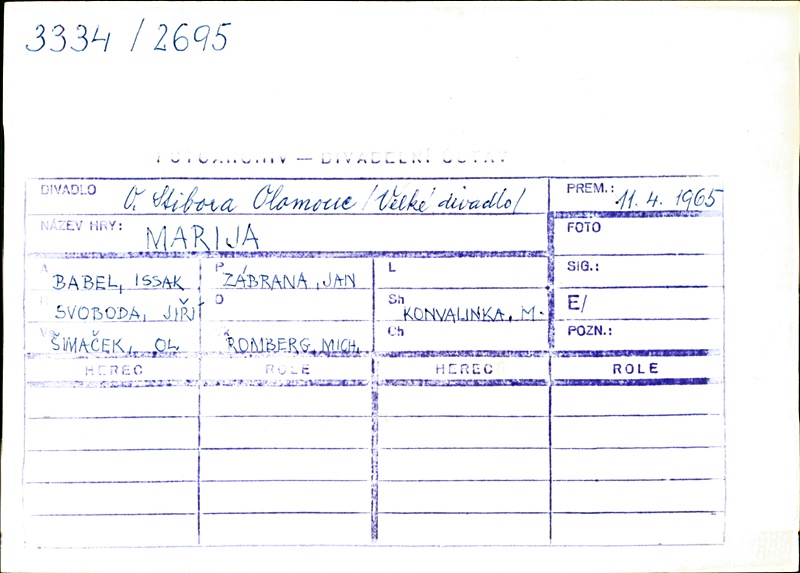 3334 / 2695
FOTOARCHIV — DIVADELNÍ ÚSTAV
DIVADLO O. Stibora Olomouc /Velké divadlo/ PREM.: 11. 4. 1965
NÁZEV HRY: MARIJA FOTO
A BABEL, ISSAK P ZÁBRANA, JAN L SIG.:
R SVOBODA, JIŘÍ D Sh KONVALINKA, M. E/
ŠIMAČEK, OL ROMBERG, MICH. Ch POZN.:
HEREC ROLE HEREC ROLE